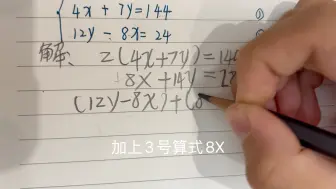 4x + 7y = 144 ①
12y - 8x = 24 ②
解: 2(4x+7y) = 14
8x + 14y = 2
(12y-8x)+(8
加上3号算式8X